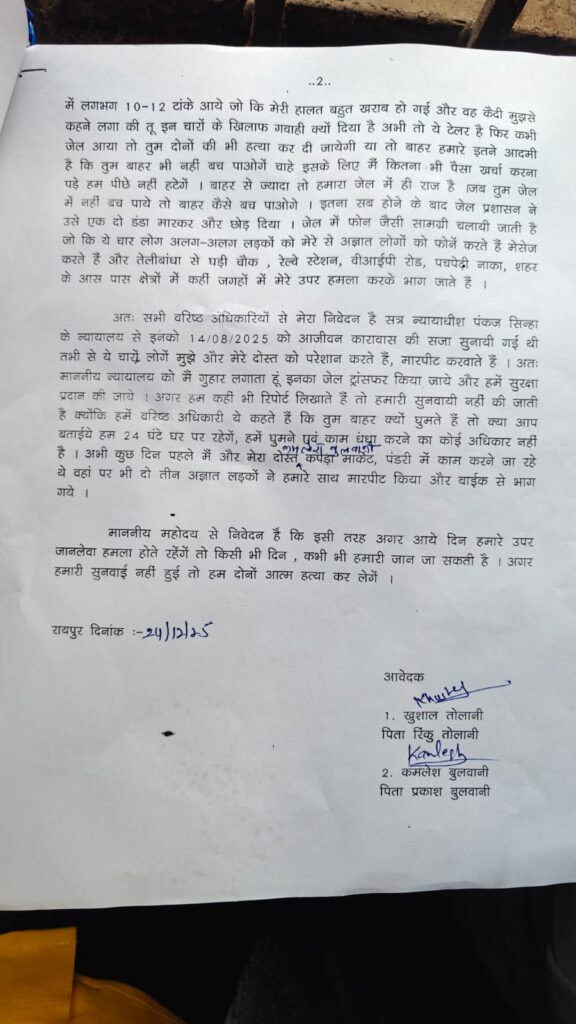 ..2..
में लगभग 10-12 टांके आये जो कि मेरी हालत बहुत खराब हो गई और वह कैदी मुझसे
कहने लगा की तू इन चारों के खिलाफ गवाही क्यों दिया है अभी तो ये टेलर है फिर कभी
जेल आया तो तुम दोनों की भी हत्या कर दी जायेगी या तो बाहर हमारे इतने आदमी
है कि तुम बाहर भी नहीं बच पाओगें चाहे इसके लिए मैं कितना भी पैसा खर्चा करना
पड़े हम पीछे नहीं हटेगें । बाहर से ज्यादा तो हमारा जेल में ही राज है ।जब तुम जेल
में नहीं बच पाये तो बाहर कैसे बच पाओगे । इतना सब होने के बाद जेल प्रशासन ने
उसे एक दो डंडा मारकर और छोड़ दिया । जेल में फोन जैसी सामग्री चलायी जाती है
जो कि ये चार लोग अलग-अलग लड़कों को मेरे से अज्ञात लोगों को फोनें करते हैं मेसेज
करते हैं और तेलीबांधा से घड़ी चौक , रेल्वे स्टेशन, वीआईपी रोड, पचपेढ़ी नाका, शहर
के आस पास क्षेत्रों में कहीं जगहों में मेरे उपर हमला करके भाग जाते हैं ।
अतः सभी वरिष्ठ अधिकारियों से मेरा निवेदन है सत्र न्यायाधीश पंकज सिन्हा
के न्यायालय से इनको 14/08/2025 को आजीवन कारावास की सजा सुनायी गई थी
तभी से ये चारों लोगें मुझे और मेरे दोस्त को परेशान करते हैं, मारपीट करवाते हैं । अतः
माननीय न्यायालय को मैं गुहार लगाता हूं इनका जेल ट्रांसफर किया जाये और हमें सुरक्षा
प्रदान की जाये । अगर हम कहीं भी रिपोर्ट लिखाते हैं तो हमारी सुनवायी नहीं की जाती
है क्योंकि हमें वरिष्ठ अधिकारी ये कहते हैं कि तुम बाहर क्यों घुमते हैं तो क्या आप
बताईये हम 24 घंटे घर पर रहेगें, हमें घुमने एवं काम धंधा करने का कोई अधिकार नहीं
कमलेश बुलवानी
है । अभी कुछ दिन पहले मैं और मेरा दोस्त कपड़ा मार्केट, पंडरी में काम करने जा रहे
थे वहां पर भी दो तीन अज्ञात लड़कों ने हमारे साथ मारपीट किया और बाईक से भाग
गये ।
माननीय महोदय से निवेदन है कि इसी तरह अगर आये दिन हमारे उपर
जानलेवा हमला होते रहेंगें तो किसी भी दिन , कभी भी हमारी जान जा सकती है । अगर
हमारी सुनवाई नहीं हुई तो हम दोनों आत्म हत्या कर लेगें ।
रायपुर दिनांक :-24/12/25
आवेदक
1. खुशाल तोलानी
पिता रिंकु तोलानी
Kamlesh
2. कमलेश बुलवानी
पिता प्रकाश बुलवानी